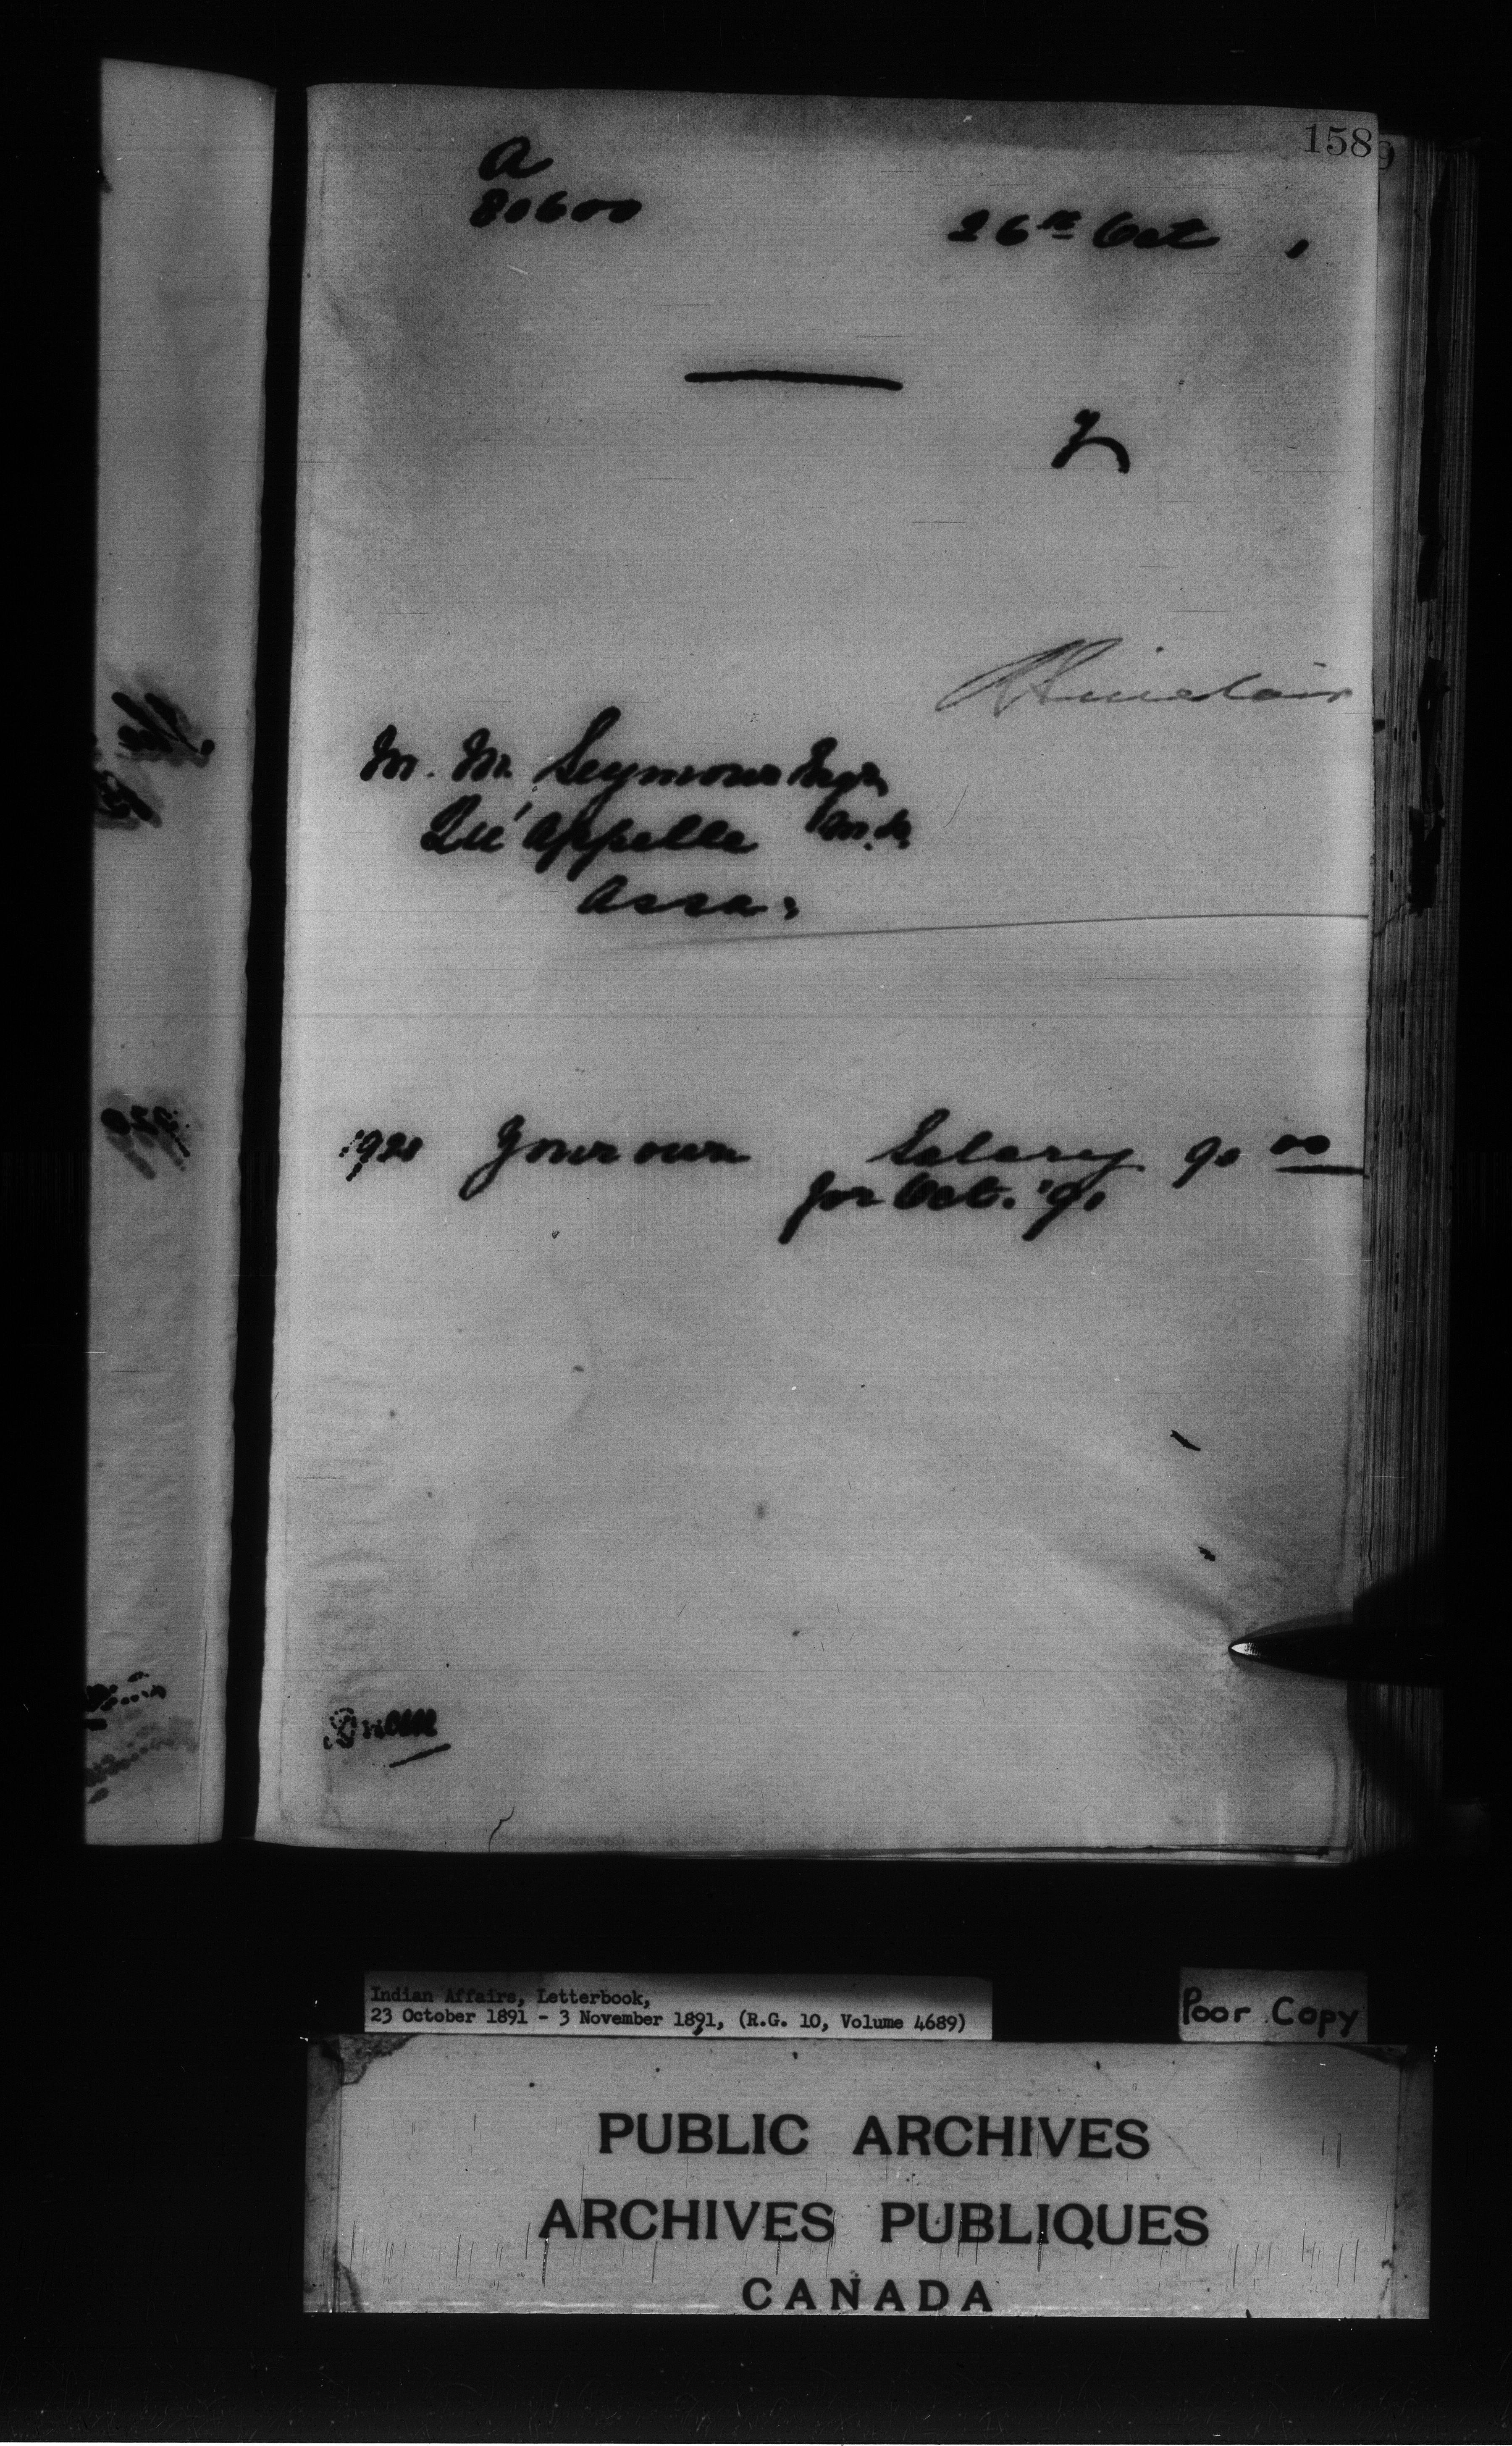 158
A
80600
26th Oct
R Sinclair
M. M. Seymour Esqr,
Qu'Appelle M.D.
Assa:
1920 Your own Salary 90 00
for Oct. '91
Indian Affairs, Letterbook,
23 October 1891 - 3 November 1891, (R.G. 10, Volume 4689)
Poor Copy
PUBLIC ARCHIVES
ARCHIVES PUBLIQUES
CANADA